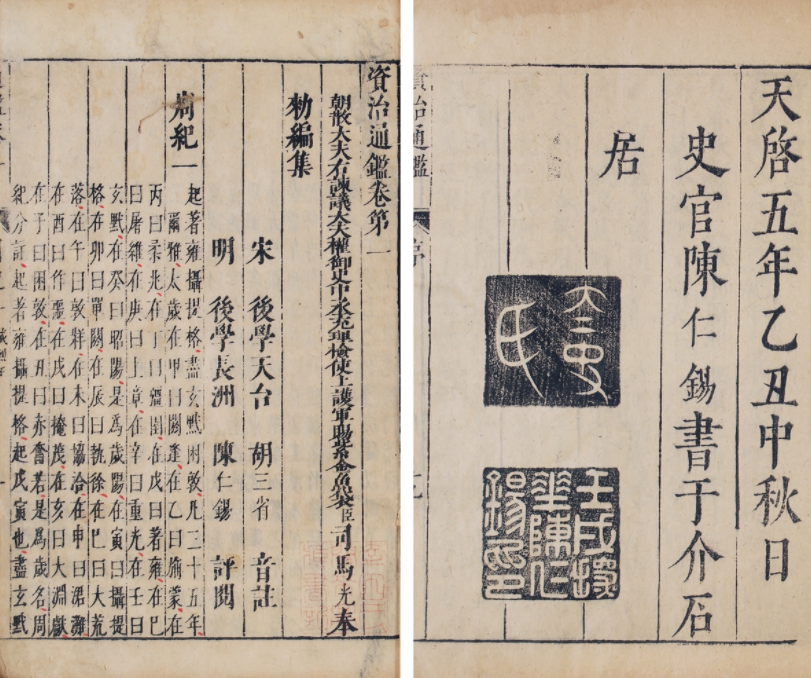 天啓五年乙丑中秋日
史官陳仁錫書于介石
居
太史氏
壬戌探
花陳仁
錫印
資治通鑑
序
資治通鑑卷第一
朝散大夫右諫議大夫權御史中丞充理檢使上護軍賜紫金魚袋臣司馬光奉
勑編集
宋 後學天台 胡三省 音註
明 後學長洲 陳仁錫 評閱
周紀一
起著雍攝提格盡玄黓困敦凡三十五年
爾雅太歲在甲曰閼逢在乙曰旃蒙在
丙曰柔兆在丁曰彊圉在戊曰著雍在巳
曰屠維在庚曰上章在辛曰重光在壬曰
玄黓在癸曰昭陽是爲歲陽在寅曰攝提
格在卯曰單閼在辰曰執徐在巳曰大荒
落在午曰敦牂在未曰協洽在申曰涒灘
在酉曰作噩在戌曰掩茂在亥曰大淵獻
在子曰困敦在丑曰赤奮若是爲歲名周
紀分註起著雍攝提格起戊寅也盡玄黓